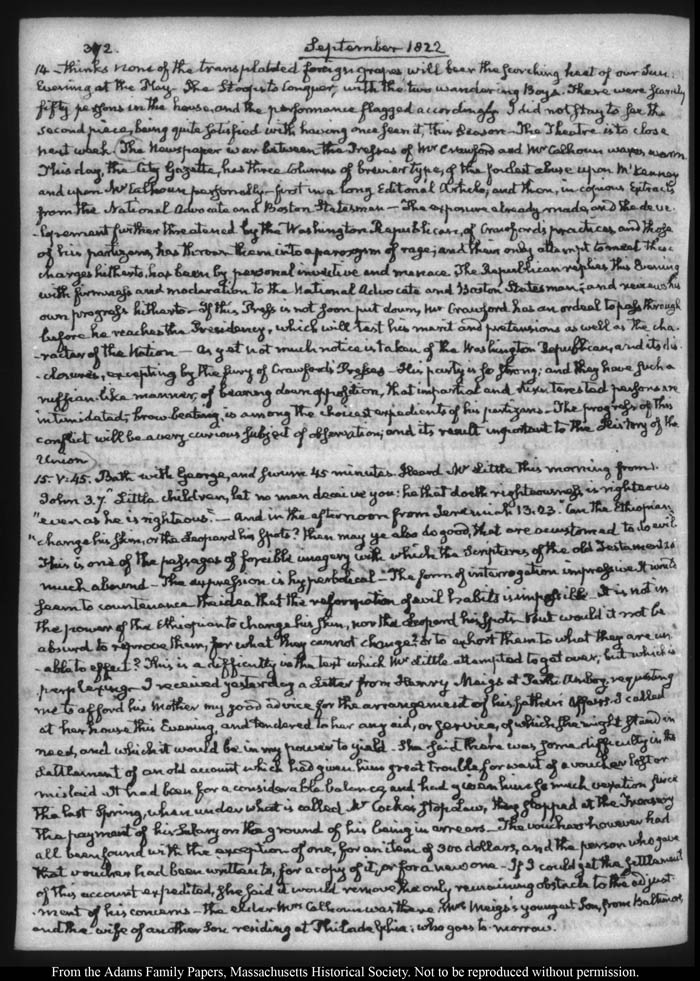 372. September 1822
14 – thinks none of the transplanted foreign grapes will bear the scorching heat of our Sun.
Evening at the Play. She Stoops to Conquer, with the two wandering Boys. There were scarcely
fifty persons in the house, and the performance flagged accordingly. I did not stay to see the
second piece, being quite satisfied with having once seen it, this Season – The Theatre is to close
next week. The Newspaper war between the Presses of Mr Crawford and Mr Calhoun waxes warm
This day, the City Gazette, has three columns of brevier type, of the foulest abuse upon McKenney
and upon Mr Calhoun personally – first in a long Editorial Article, and then, in copious Extracts
from the National Advocate and Boston Statesman – The exposure already made, and the deve-
-lopement further threatened by the Washington Republican, of Crawford's practices, and those
of his partizans, has thrown them into a paroxysm of rage; and their only attempt to meet these
charges hitherto, has been by personal invective and menace. The Republican replies this Evening
with firmness and moderation to the National Advocate and Boston Statesman; and reviews his
own progress hitherto – If this Press is not soon put down, Mr Crawford has an ordeal to pass through
before he reaches the Presidency, which will test his merit and pretensions as well as the cha-
-racter of the Nation – As yet not much notice is taken of the Washington Republican, and its dis-
-closures, excepting by the fury of Crawford's Presses – His party is so strong; and they have such a
ruffian-like manner, of bearing down opposition, that impartial and disinterested persons are
intimidated; brow-beating is among the choicest expedients of his partizans – The progress of this
conflict will be a very curious subject of observation; and its result important to the History of the
Union
15. V:45. Bath with George, and swam 45 minutes. Heard Mr Little this morning from 1.
John 3.7. "Little children, let no man deceive you: he that doeth righteousness, is righteous
"even as he is righteous." – And in the afternoon from Jeremiah 13.23. Can the Ethiopian
"change his skin, or the Leopard his spots? then may ye also do good, that are accustomed to do evil
This is one of the passages of forcible imagery with which the Scriptures of the old Testament so
much abound – The expression is hyperbolical – The form of interrogation impressive. It would
seem to countenance the idea that the reformation of evil habits is impossible. It is not in
the power of the Ethiopian to change his skin, nor the Leopard his spots – But would it not be
absurd to reprove them, for what they cannot change? or to exhort them to what they are un-
-able to effect? This is a difficulty in the text which Mr Little attempted to get over; but which is
perplexing – I received yesterday a Letter from Henry Meigs at Perth Amboy, requesting
me to afford his Mother my good advice for the arrangement of his father's Affairs. I called
at her house this Evening, and tendered to her any aid, or service, of which she might stand in
need, and which it would be in my power to yield. She said there was some difficulty in the
settlement of an old account which had given him great trouble for want of a voucher lost or
mislaid. It had been for a considerable balance, and had given him so much vexation since
the last Spring, when under what is called Mr Cocke's Stop Law, they stopped at the Treasury
the payment of his Salary on the ground of his being in arrears. – The vouchers however had
all been found with the exception of one, for an item of 300 dollars, and the person who gave
that voucher had been written to, for a copy of it, or for a new one – If I could get the settlement
of this account expedited, she said it would remove the only remaining obstacle to the adjust-
-ment of his concerns – The elder Mrs Calhoun was there. Mrs Meigs's youngest Son, from Baltimore,
and the wife of another Son residing at Philadelphia; who goes to-morrow.
From the Adams Family Papers, Massachusetts Historical Society. Not to be reproduced without permission.